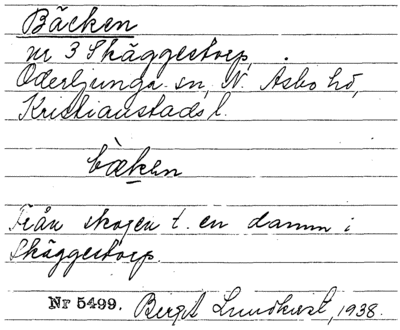 Bäcken
nr 3 Skäggestorp,
Oderljunga sn, N. Åsbo hd,
Kristianstads l.
bæken
Från skogen t. en damm i
Skäggestorp.
Nr 5499. Bergit Lundkvist, 1938.